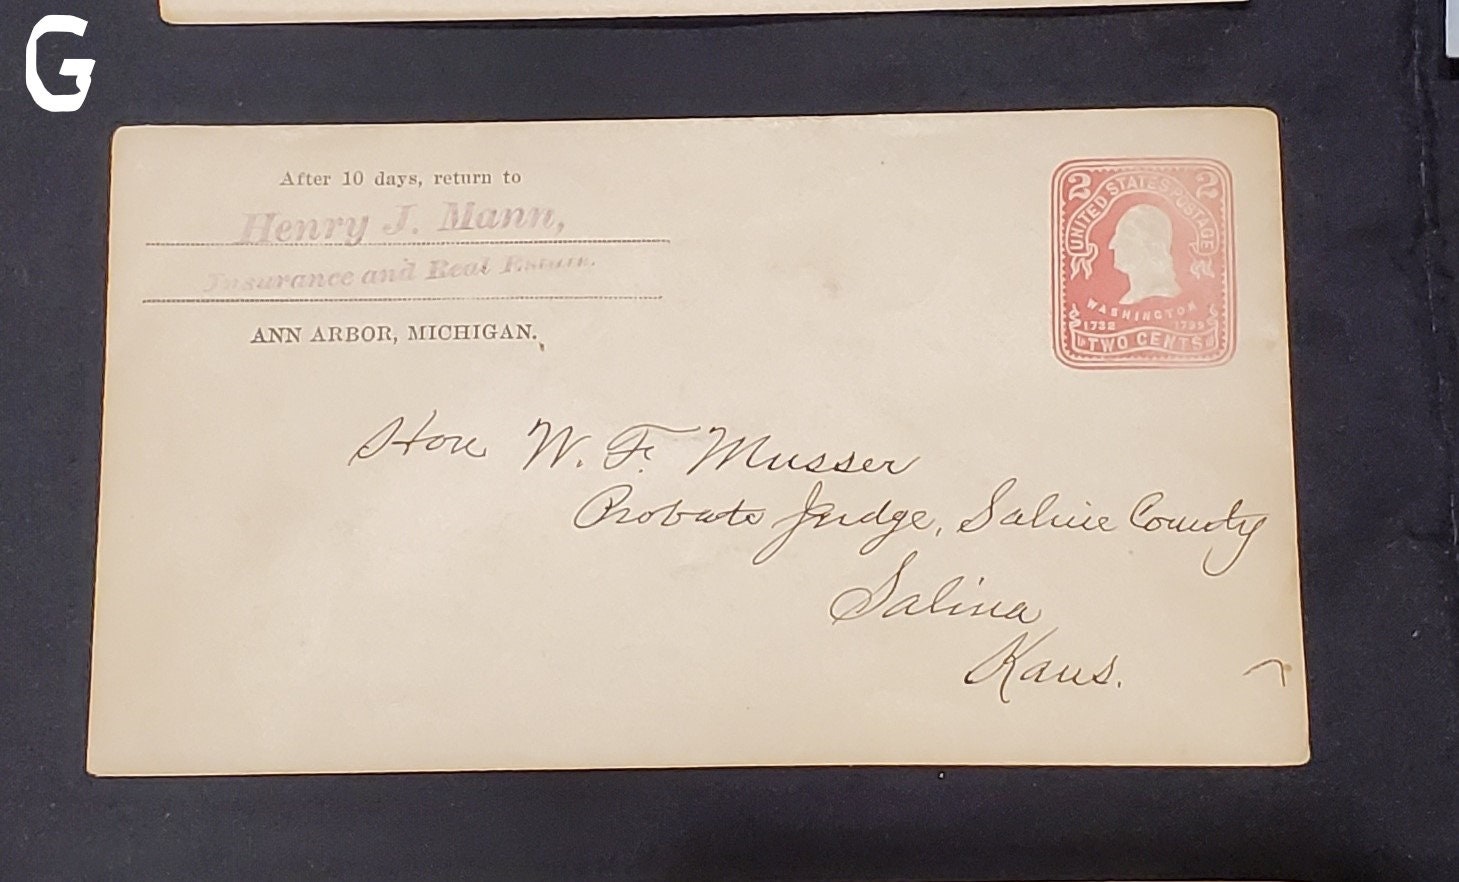 G
After 10 days, return to
Henry J. Mann,
Insurance and Real Estate.
ANN ARBOR, MICHIGAN.
2 2
UNITED STATES POSTAGE
WASHINGTON
1732 1799
TWO CENTS
Hon W. F. Musser
Probate Judge, Saline County
Salina
Kans.